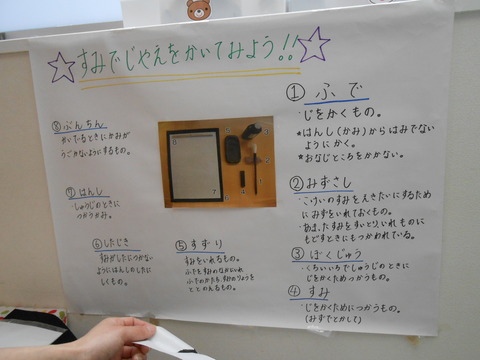 すみでじやえをかいてみよう!!
① ふで
・じをかくもの。
*はんし(かみ)からはみでない
ようにかく。
*おなじところをかかない。
② みずさし
・こけいのすみをえきたいにするため
にみずをいれておくもの。
・あまったすみをすいとりいれものに
もどすときにもつかわれている。
③ ぼくじゅう
・くろいいろでしゅうじのときに
じをかくためつかうもの。
④ すみ
・じをかくためにつかうもの。
(みずでとかして)
⑤ すずり
すみをいれるもの。
ふでをすみのなかにいれ
ふでのかたち、すみのりょうを
ととのえるもの。
⑥ したじき
すみがしたにつかない
ようにはんしのしたに
しくもの。
⑦ はんし
・しゅうじのときに
つかうかみ。
⑧ ぶんちん
かいているときにかみが
うごかないようにするもの。